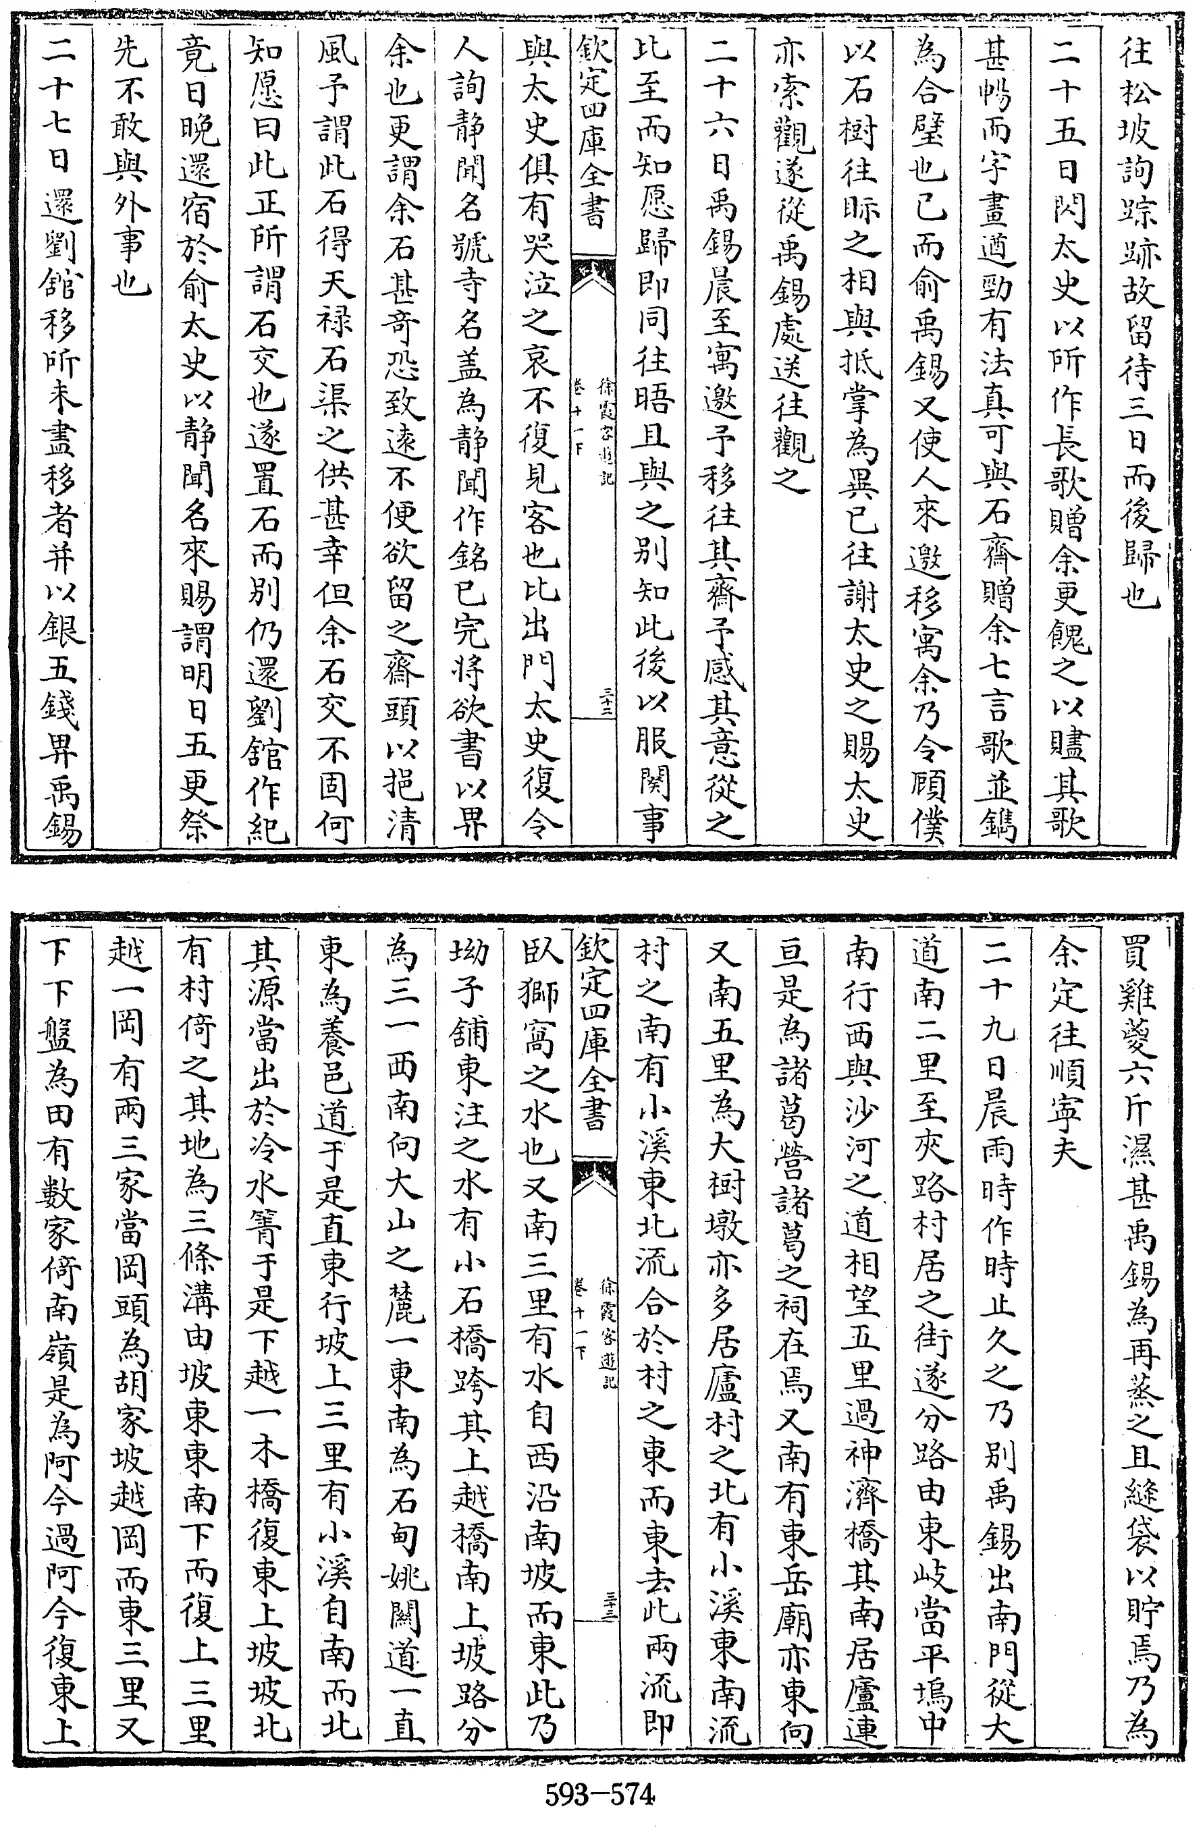 往松坡詢踪跡故留待三日而後歸也
二十五日閃太史以所作長歌贈余更餽之以贐其歌
甚暢而字畫遒勁有法真可與石齋贈余七言歌並鐫
為合璧也已而俞禹錫又使人來邀移寓余乃令顧僕
以石樹往眎之相與抵掌為異已往謝太史之賜太史
亦索觀遂從禹錫處送往觀之
二十六日禹錫晨至寓邀予移往其齋予感其意從之
比至而知愿歸即同往晤且與之别知此後以服闋事
欽定四庫全書
徐霞客遊記
卷十一下
三十二
與太史俱有哭泣之哀不復見客也比出門太史復令
人詢静聞名號寺名盖為静聞作銘已完將欲書以畀
余也更謂余石甚奇恐致遠不便欲留之齋頭以挹清
風予謂此石得天禄石渠之供甚幸但余石交不固何
知愿曰此正所謂石交也遂置石而别仍還劉館作紀
竟日晚還宿於俞太史以静聞名來賜謂明日五更祭
先不敢與外事也
二十七日還劉館移所未盡移者并以銀五錢畀禹錫
買雞葼六斤濕甚禹錫為再蒸之且縫袋以貯焉乃為
余定往順寧夫
二十九日晨雨時作時止久之乃别禹錫出南門從大
道南二里至夾路村居之街遂分路由東岐當平塢中
南行西與沙河之道相望五里過神濟橋其南居廬連
亘是為諸葛營諸葛之祠在焉又南有東岳廟亦東向
又南五里為大樹墩亦多居廬村之北有小溪東南流
村之南有小溪東北流合於村之東而東去此兩流即
欽定四庫全書
徐霞客遊記
卷十一下
三十三
臥獅窩之水也又南三里有水自西沿南坡而東此乃
坳子舖東注之水有小石橋跨其上越橋南上坡路分
為三一西南向大山之麓一東南為石甸姚關道一直
東為養邑道于是直東行坡上三里有小溪自南而北
其源當出於冷水箐于是下越一木橋復東上坡坡北
有村倚之其地為三條溝由坡東東南下而復上三里
越一岡有兩三家當岡頭為胡家坡越岡而東三里又
下下盤為田有數家倚南嶺是為阿今過阿今復東上
593-574